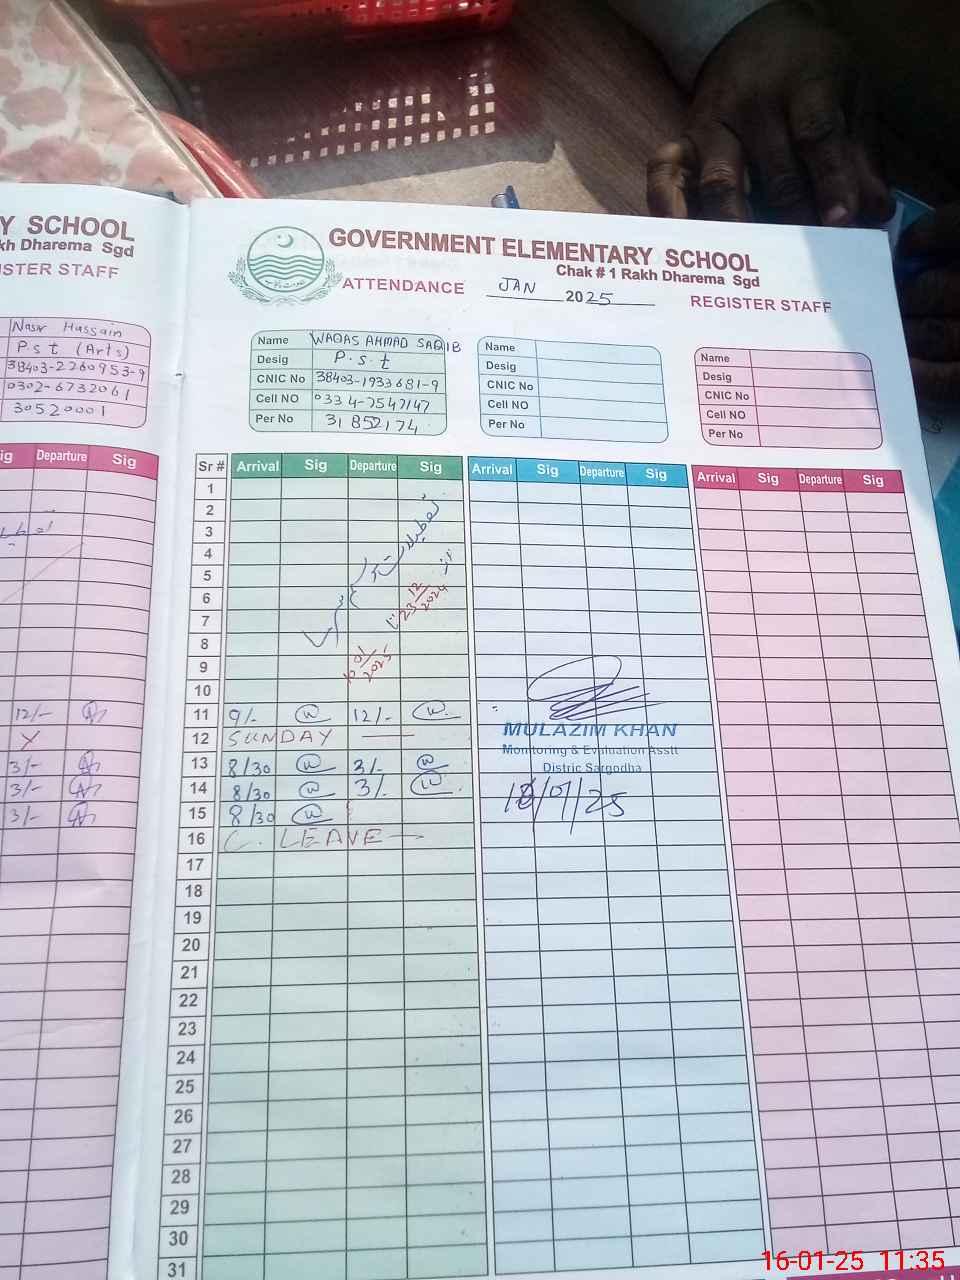 Y SCHOOL
kh Dharema Sgd
ISTER STAFF
Nasir Hussain
P s t (Arts)
38403-2260953-9
0302-6732061
30520001
ig Departure Sig
12/-
X
3/-
3/-
3/-
GOVERNMENT ELEMENTARY SCHOOL
Chak # 1 Rakh Dharema Sgd
ATTENDANCE JAN 2025 REGISTER STAFF
Name WAQAS AHMAD SAQIB
Desig P.s.t
CNIC No 38403-1933681-9
Cell NO 0334-7547147
Per No 31852174
Name
Desig
CNIC No
Cell NO
Per No
Name
Desig
CNIC No
Cell NO
Per No
Sr # Arrival Sig Departure Sig Arrival Sig Departure Sig Arrival Sig Departure Sig
1
2
3
4
5
6
7
8
9
10
تعطیلات
از
23/12/2024 تا
10/01/2025
11 9/- W 12/- W
12 SUNDAY
13 8/30 W 3/- W
14 8/30 W 3/- W
15 8/30 W
16 C. LEAVE
17
18
19
20
21
22
23
24
25
26
27
28
29
30
31
MULAZIM KHAN
Monitoring & Evaluation Asstt
Distric Sargodha
16-01-25 11:35